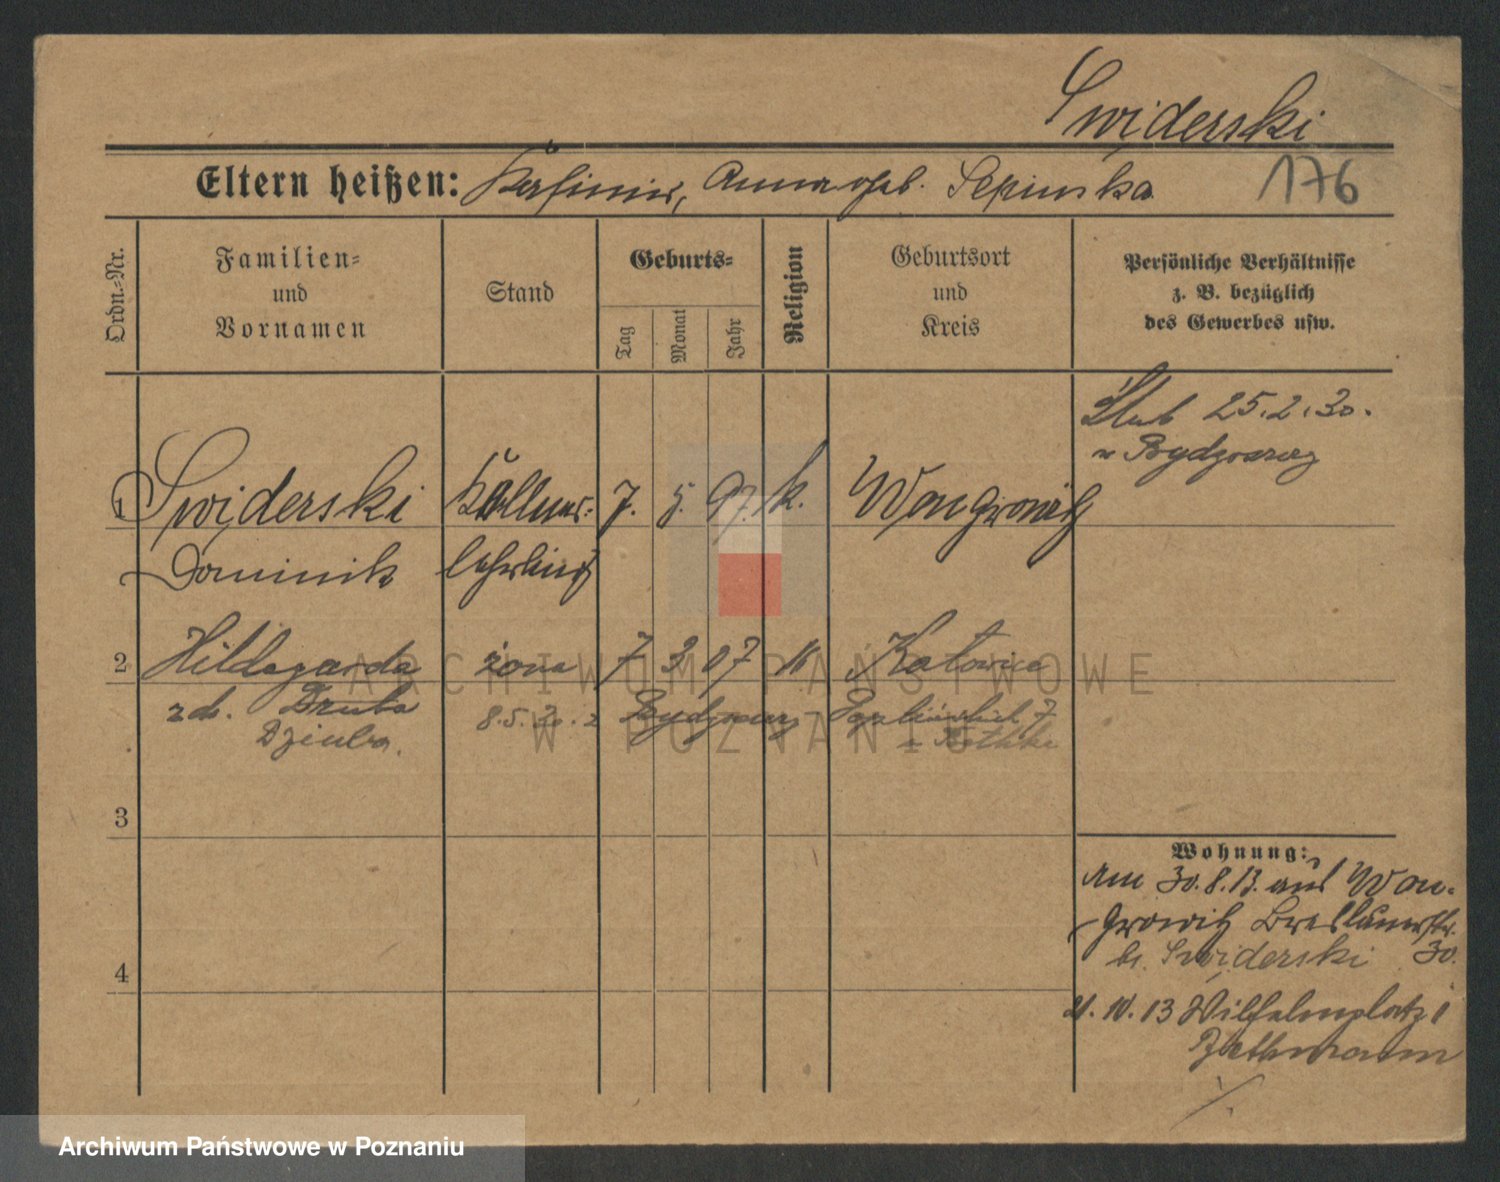 Swiderski
Eltern heißen: Kasimir, Anna geb. 176
Ordn.-Nr.
Familien- und Vornamen
Stand
Geburts-
Tag
Monat
Jahr
Religion
Geburtsort und Kreis
Persönliche Verhältnisse
z. B. bezüglich
des Gewerbes usw.
Ślub 25.2.30.
w Bydgoszczy
1 Swiderski Kellner- 7. 5. 97. k. Wongrowitz
Dominik lehrling
2 Hildegarda żona 7 3 07 Katowice
zd. Dziuba
8.5.30. z Bydgoszczy
3
4
Wohnung:
Am 30.8.13. aus Won-
growitz Breslauerstr.
bei Swiderski 30.
21.10.13 Wilhelmplatz 1
ARCHIWUM PAŃSTWOWE
W POZNANIU
Archiwum Państwowe w Poznaniu